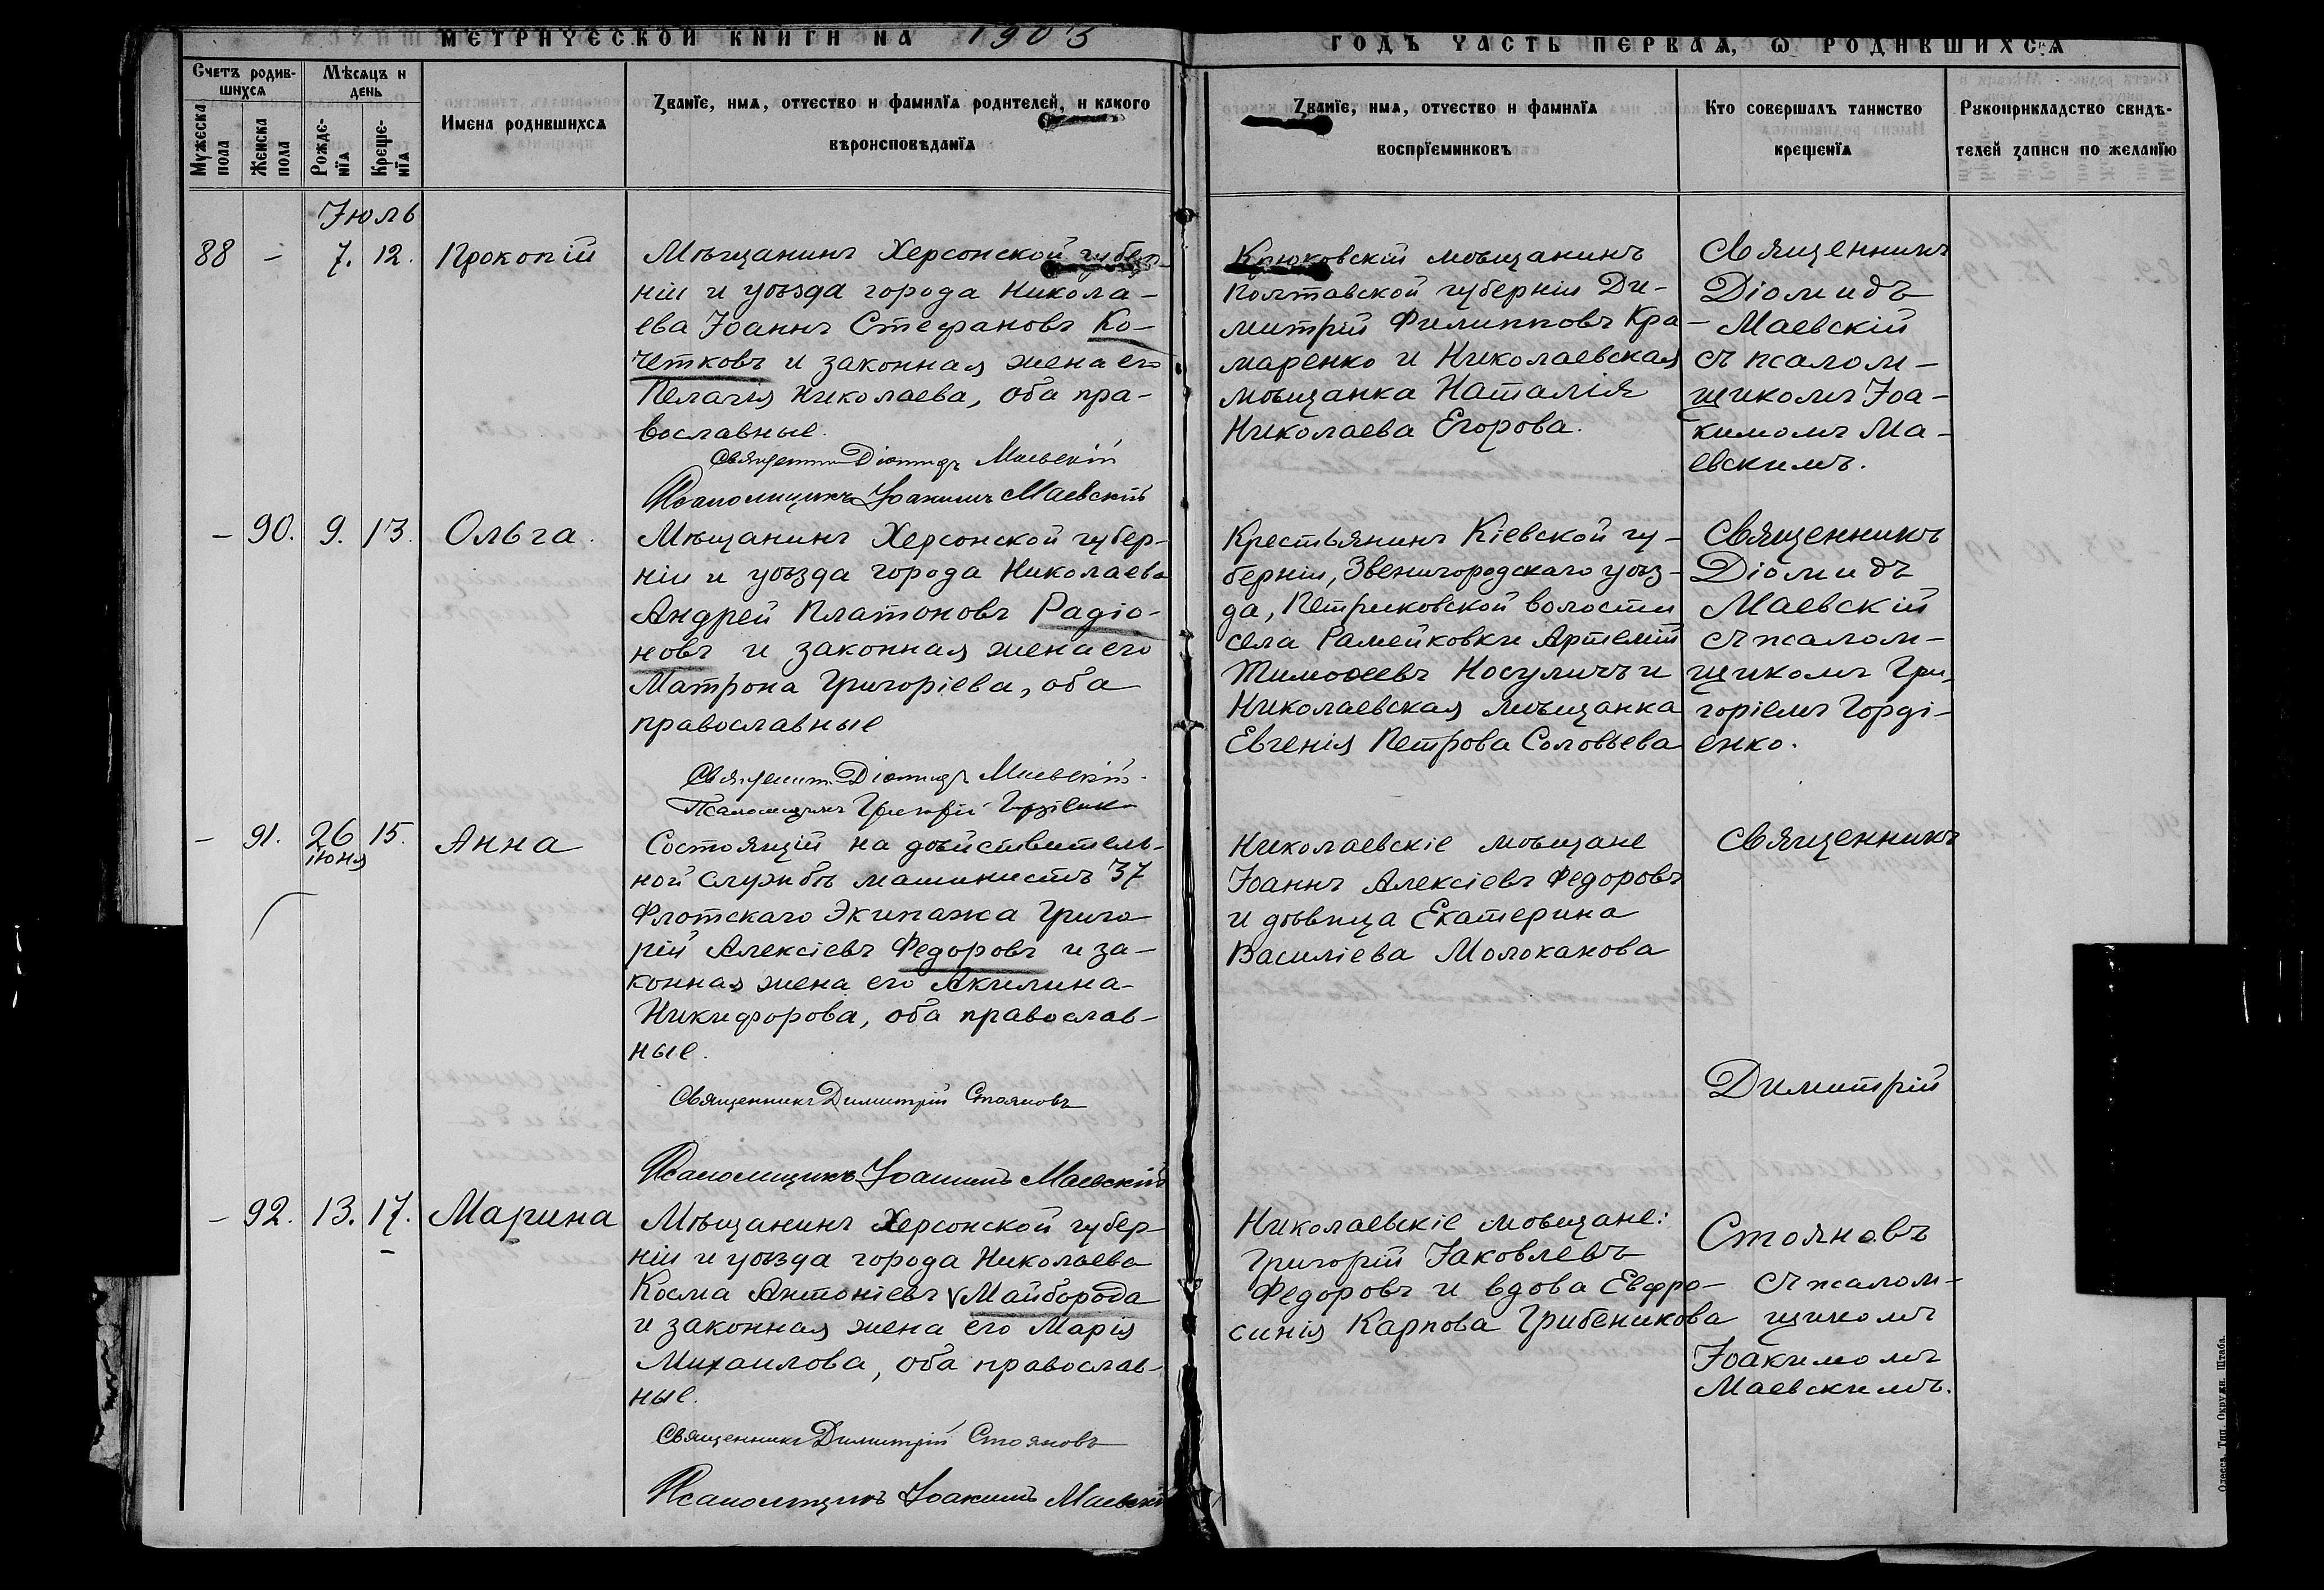 МЕТРИЧЕСКОЙ КНИГИ НА 1903
ГОДЪ ЧАСТЬ ПЕРВАЯ, Ѡ РОДИВШИХСЯ
Счетъ родив-
шихся
Мѣсяцъ и
день
Мужеска
пола
Женска
пола
Рожде-
нїя
Креще-
нїя
Имена родившихся
Званїе, имя, отчество и фамилїя родителей, и какого
вѣроисповѣданїя
Званїе, имя, отчество и фамилїя
воспрїемниковъ
Кто совершалъ таинство
крещенїя
Рукоприкладство свидѣ-
телей записи по желанїю
Іюль
88 – 7. 12. Прокопій
Мѣщанинъ Херсонской губер-
ніи и уѣзда города Никола-
ева Іоаннъ Стефановъ Ко-
четковъ и законная жена его
Пелагія Николаева, оба пра-
вославные.
Священникъ Діомидъ Маевскій
Псаломщикъ Іоакимъ Маевскій
Крюковскій мѣщанинъ
Полтавской губерніи Ди-
митрій Филипповъ Кра-
маренко и Николаевская
мѣщанка Наталія
Николаева Егорова.
Священникъ
Діомидъ
Маевскій
съ псалом-
щикомъ Іоа-
кимомъ Ма-
евскимъ.
– 90. 9. 13. Ольга.
Мѣщанинъ Херсонской губер-
ніи и уѣзда города Николаева
Андрей Платоновъ Радіо-
новъ и законная жена его
Матрона Григоріева, оба
православные
Священник Діомидъ Маевскій.
Псаломщикъ Григорій Гордіенко
Крестьянинъ Кіевской гу-
берніи, Звенигородскаго уѣз-
да, Петриковской волости
села Рамейковки Артемій
Тимоѳеевъ Носуличъ и
Николаевская мѣщанка
Евгенія Петрова Соловьева
Священникъ
Діомидъ
Маевскій
съ псалом-
щикомъ Гри-
горіемъ Горді-
енко.
– 91. 26 15. Анна
іюня
Состоящій на дѣйствитель-
ной службѣ машинистъ 37
Флотскаго Экипажа Григо
рій Алексіевъ Федоровъ и за-
конная жена его Акилина
Никифорова, оба православ-
ные.
Священникъ Димитрій Стояновъ
Псаломщикъ Іоакимъ Маевскій
Николаевскіе мѣщане
Іоаннъ Алексіевъ Федоровъ
и дѣвица Екатерина
Василіева Молоканова
Священникъ
Димитрій
– 92. 13. 17. Марина
Мѣщанинъ Херсонской губер-
ніи и уѣзда города Николаева
Косма Антоніевъ Майборода
и законная жена его Марія
Михаилова, оба православ-
ные.
Священникъ Димитрій Стояновъ
Псаломщикъ Іоакимъ Маевскій
Николаевскіе мѣщане:
Григорій Іаковлевъ
Федоровъ и вдова Евфро-
синія Карпова Грибеникова
Стояновъ
съ псалом-
щикомъ
Іоакимомъ
Маевскимъ.
Одесса. Тип. Окружн. Штаба.